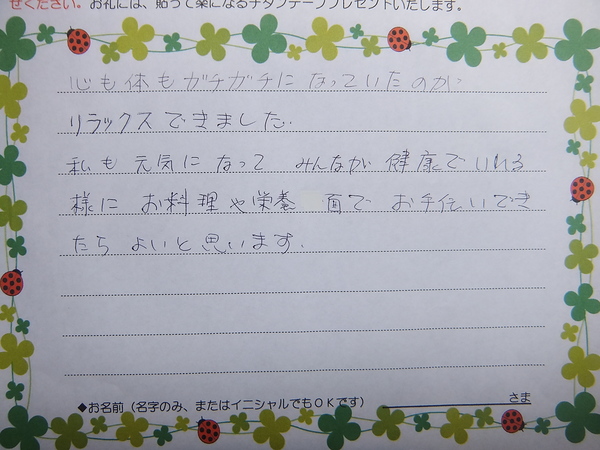 せください。お礼には、貼って楽になるチタンテーププレゼントいたします。
心も体もガチガチになっていたのが
リラックスできました.
私も元気になって みんなが健康でいれる
様に お料理や栄養 面で お手伝いでき
たら よいと思います.
◆お名前（名字のみ、またはイニシャルでもＯＫです） さま